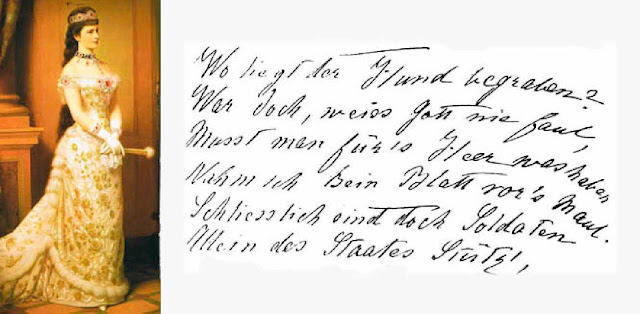 Wo liegt der Hund begraben?
War doch, weiss Gott nie faul,
Musst man für's Heer was haben
Nahm ich kein Blatt vor's Maul.
Schliesslich sind doch Soldaten
Allein des Staates Stütz',